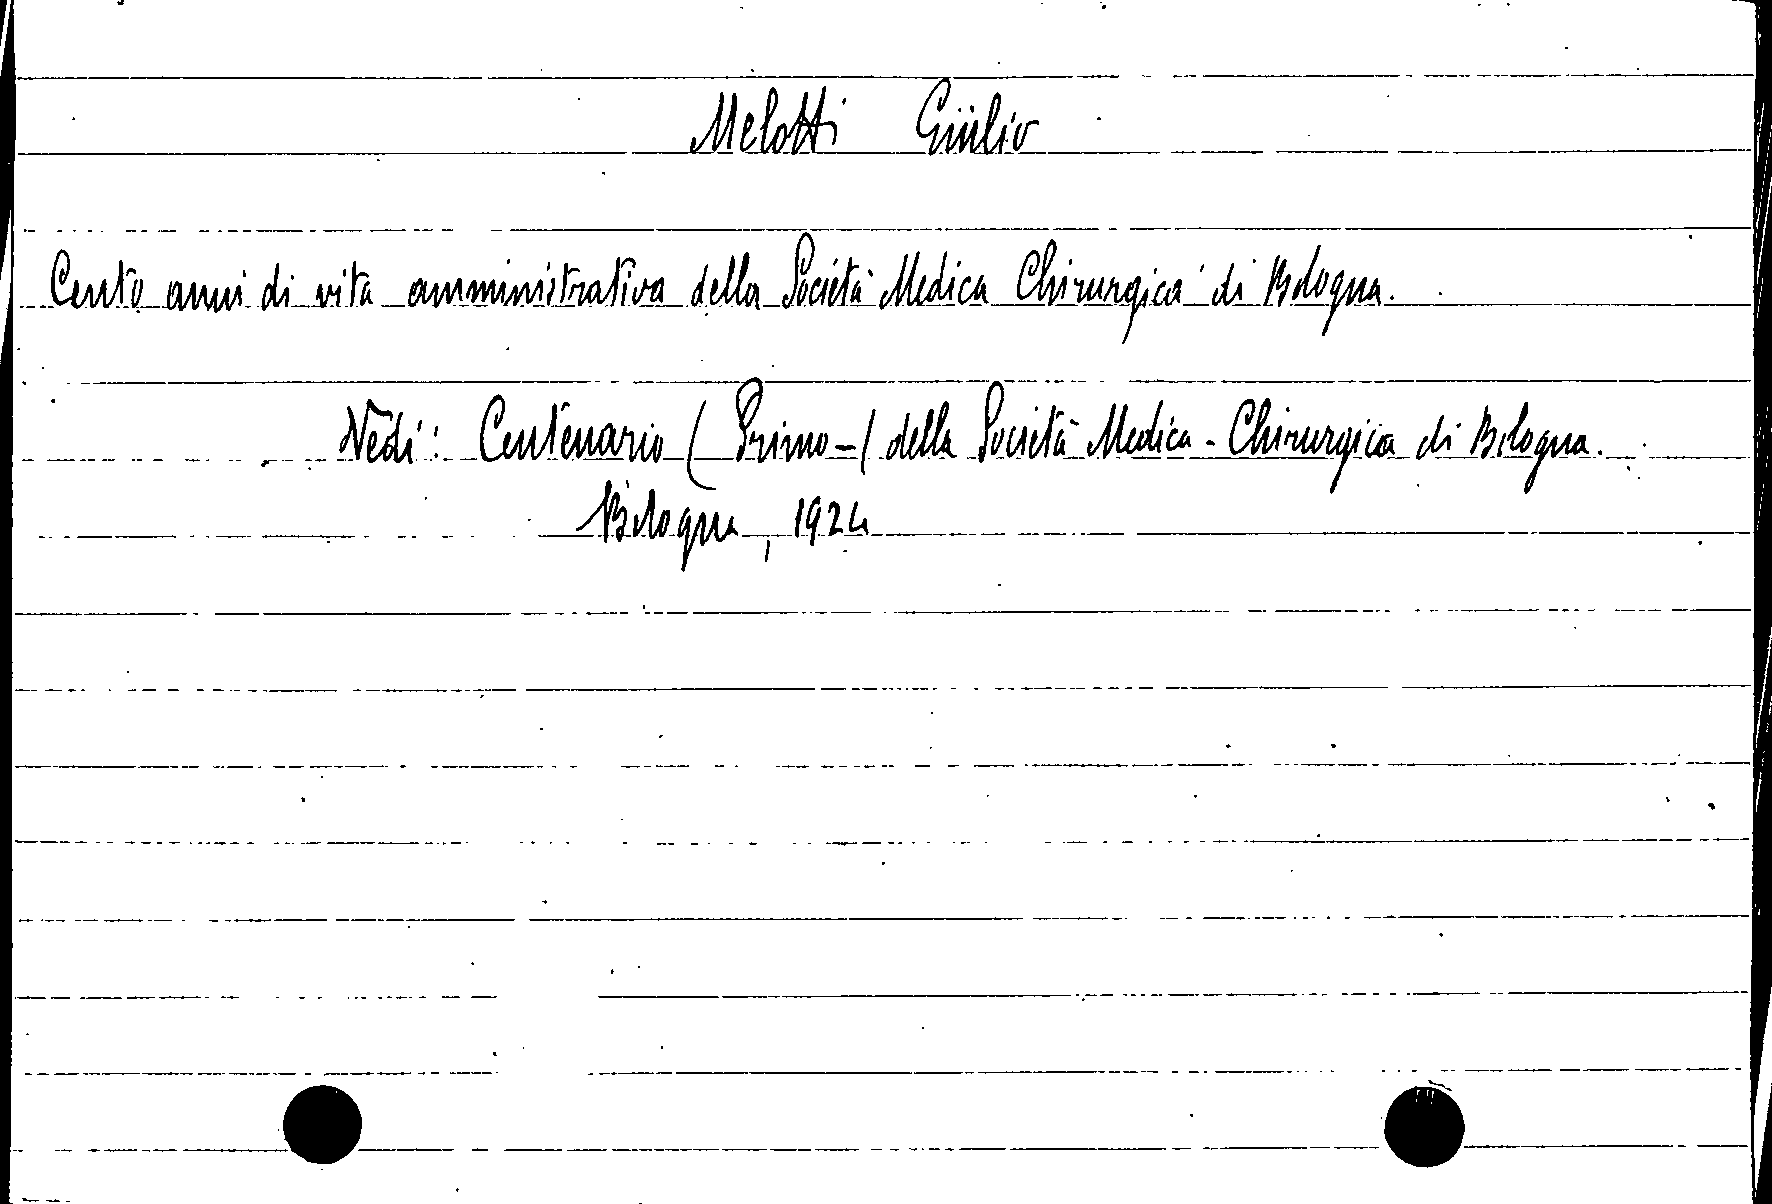 Melotti Giulio
Cento anni di vita amministrativa della Società Medica Chirurgica di Bologna.
Vedi: Centenario (Primo-) della Società Medica-Chirurgica di Bologna.
Bologna, 1924